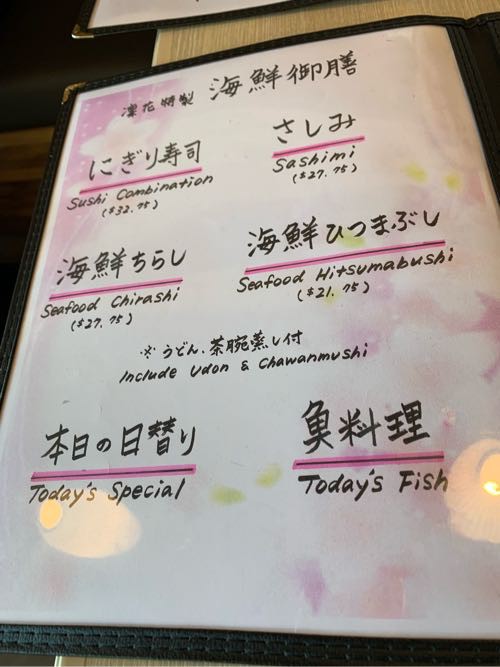 凜花特製 海鮮御膳
にぎり寿司
Sushi Combination
($32.75)
さしみ
Sashimi
($27.75)
海鮮ちらし
Seafood Chirashi
($27.75)
海鮮ひつまぶし
Seafood Hitsumabushi
($21.75)
※ うどん、茶腕蒸し付
Include Udon & Chawanmushi
本日の日替り
Today's Special
魚料理
Today's Fish